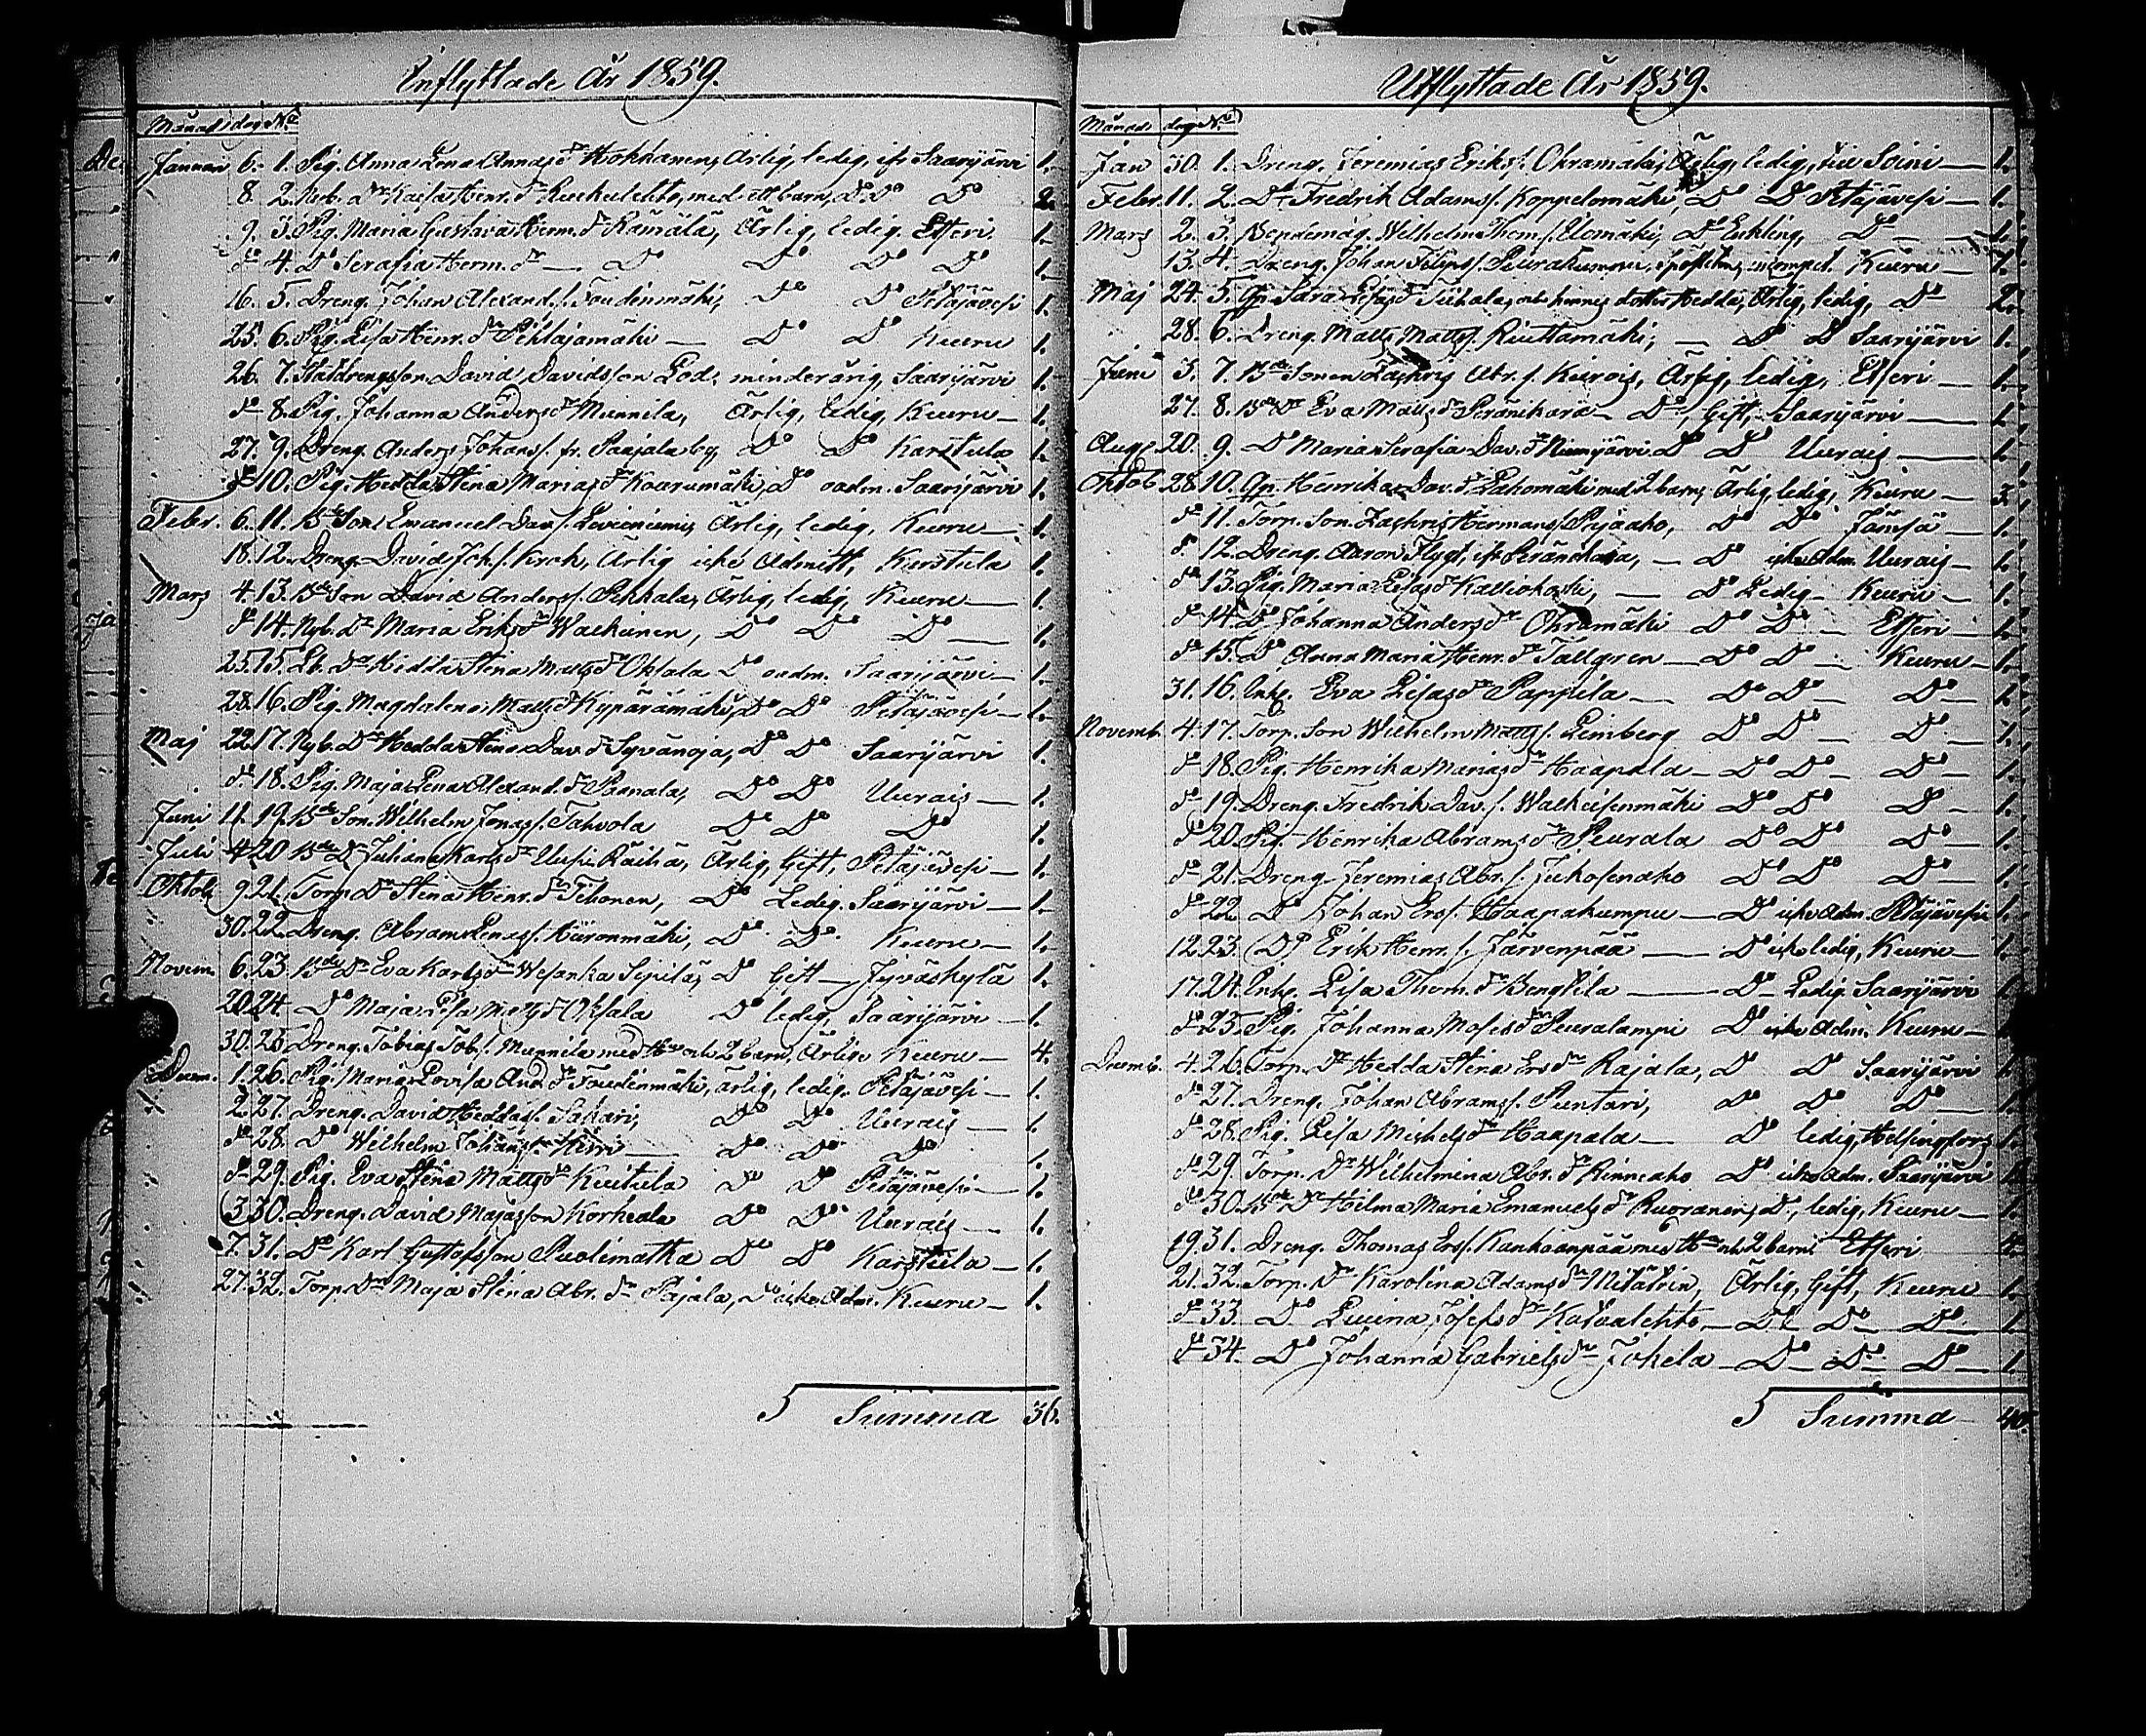 Inflyttade År 1859.
Månad dag No
Januari 6. 1. Pig. Anna Lena Annasdr Hokkanen, Ärlig, ledig, ifr Saarijärvi 1.
8. 2. Nyb. dr Kaisa Henr. dr med ett barn, Do Do Do 2.
9. 3. Pig. Maria Gustava Herm. dr Rämälä, Ärlig, ledig. Etseri. 1.
do 4. Do Serafia Herm. dr — Do Do Do Do 1.
16. 5. Dreng. Johan Alexand. s. Do Do Petäjävesi 1.
25. 6. Pig. Lisa Henr. dr Pihlajamäki — Do Do Keuru 1.
26. 7. Statdrengsson David Davidsson Lod, minderårig, Saarijärvi 1.
do 8. Pig. Johanna Andersdr Munnila, Ärlig, ledig, Keuru — 1.
27. 9. Dreng. Anders Johans s. fr. Paajala by, Do Do Karstula 1.
do 10. Pig. Hedda Stina Mariasdr Koarumäki, Do oadm. Saarijärvi 1.
Febr. 6. 11. Bde Son Emanuel Dav. s. Ärlig, ledig, Keuru — 1.
18. 12. Dreng. David Joh. s. Krok, Ärlig icke Admitt, Karstula 1.
Mars 4. 13. Bde Son David Anders s. Pehkala, Ärlig, ledig, Keuru — 1.
do 14. Nyb. Dr Maria Eriksdr Walkunen, Do Do Do — 1.
25. 15. Dr Hedda Stina Mattsdr Oksala Do oadm. Saarijärvi — 1.
28. 16. Pig. Magdalena Mattsdr Kypärämäki, Do Do Petäjävesi — 1.
Maj 22. 17. Nyb. Dr Hedda Stina Dav. dr Syvänoja, Do Do Saarijärvi 1.
do 18. Pig. Maja Lena Alexand. dr Paanala, Do Do Uurais — 1.
Juni 11. 19. Bde Son. Wilhelm Jonas s. Tahvola Do Do Do 1.
Juli 4. 20. Bde Dr Juliana Karlsdr Uusi Räihä, Ärlig, Gift, Petäjävesi — 1.
Oktob. 9. 21. Torp. Dr Stina Henr. dr Tihonen, Do Ledig. Saarijärvi — 1.
30. 22. Dreng. Abram Lenas s. Kiironmäki, Do Do Keuru — 1.
Novem. 6. 23. Bde Dr Eva Karlsdr Wesanka Sipilä, Do Gift — Jyväskylä 1.
20. 24. Do Maja Lisa Mattsdr Oksala Do ledig, Saarijärvi — 1.
30. 25. Dreng. Tobias Tob. s. Munnila med Hu och 2 barn, Ärlige Keuru — 4.
Decem. 1. 26. Pig. Maria Lovisa And. dr ärlig, ledig. Petäjävesi — 1.
2. 27. Dreng. David Heddas s. Sakari, Do Do Uurais — 1.
do 28. Do Wilhelm Johans s. Hirvi — Do Do Do 1.
do 29. Pig. Eva Stina Mattsdr Kuitula Do Do Petäjävesi — 1.
3. 30. Dreng. David Majasson Korheala Do Do Uurais — 1.
7. 31. Do Karl Gustafsson Puolimatka Do Do Karstula — 1.
27. 32. Torp. Dr Maja Stina Abr. dr Pajala, Do icke Adm. Keuru — 1.
S Summa 36.
Utflyttade År 1859.
Månad dag No
Jan 30. 1. Dreng. Jeremias Eriks s. Ohramäki, Ärlig, ledig, till Soini — 1.
Febr. 11. 2. Do Fredrik Adams s. Koppelomäki, Do Do Petäjävesi — 1.
Mars 2. 3. Bondemåg. Wilhelm Thom. s. Elomäki, Do Enkling, Do — 1.
13. 4. Dreng. Johan Keuru — 1.
Maj 24. 5. Qp Sara Lisasdr och hennes dotter Hedda, Ärlig, ledig, Do 2.
28. 6. Dreng. Matts Matts s. Riuttamäki, — Do Do Saarijärvi 1.
Juni 3. 7. Bde Sonen Zachris Abr. s. Keurois, Ärlig, ledig, Etseri — 1.
27. 8. Bde Dr Eva Mattsdr Peränikara — Do, Gift, Saarijärvi — 1.
Aug. 20. 9. Do Maria Serafia Dav. dr Niemijärvi Do Do Uurais — 1.
Oktob. 28. 10. Qp. Henrika Dav. dr Lahomäki med 2 barn, Ärlig, ledig, Keuru — 3.
do 11. Torp. Son. Zachris Hermans s. Pajaaho, Do Do Jämsä — 1.
do 12. Dreng. Aaron Flygt, ifr — Do icke Adm. Uurais — 1.
do 13. Pig. Maria Lisasdr Kalliokoski, — Do Ledig — Keuru — 1.
do 14. Do Johanna Andersdr Ohramäki Do Do — Etseri — 1.
do 15. Do Anna Maria Henr. dr Tallgren — Do Do — Keuru — 1.
31. 16. Inh. Eva Lisasdr Pappila — Do Do — Do — 1.
Novemb. 4. 17. Torp. Son Wilhelm Matts s. Limberg Do Do Do — 1.
do 18. Pig. Henrika Mariasdr Haapala — Do Do — Do — 1.
do 19. Dreng. Fredrik Dav. s. Walkeisenmäki Do Do Do — 1.
do 20. Pig. Henrika Abramsdr Peurala Do Do Do — 1.
do 21. Dreng. Jeremias Abr. s. Jukosenaho Do Do Do — 1.
do 22. Do Johan Ers s. Haapakumpu — Do icke Adm. Petäjävesi 1.
12. 23. Do Erik Henr. s. Järvenpää — Do icke ledig, Keuru — 1.
17. 24. Inh. Lisa Thom. dr Bengtila — Do — Ledig. Saarijärvi 1.
do 25. Pig. Johanna Mosesdr Peuralampi Do icke Adm. Keuru —
Decemb. 4. 26. Torp. Dr Hedda Stina Ersdr Rajala, Do Do Saarijärvi 1.
do 27. Dreng. Johan Abrams s. Puntari, Do Do Do — 1.
do 28. Pig. Lisa Michelsdr Haapala — Do ledig, Helsingfors 1.
do 29. Torp. Dr Wilhelmina Abr. dr Rinneaho Do icke Adm. Saarijärvi 1.
do 30. Bde Dr Hilma Maria Emanuelsdr Ruoranen, Do, ledig, Keuru — 1.
19. 31. Dreng. Thomas Ers s. Kankaanpää med Hu och 2 barn. Etseri 4.
21. 32. Torp. Dr Karolina Adamsdr Ärlig, Gift, Keuru 1.
do 33. Do Josefsdr — Do Do — Do — 1.
do 34. Do Johanna Gabrielsdr Jokela — Do — Do — Do — 1.
S Summa 40.